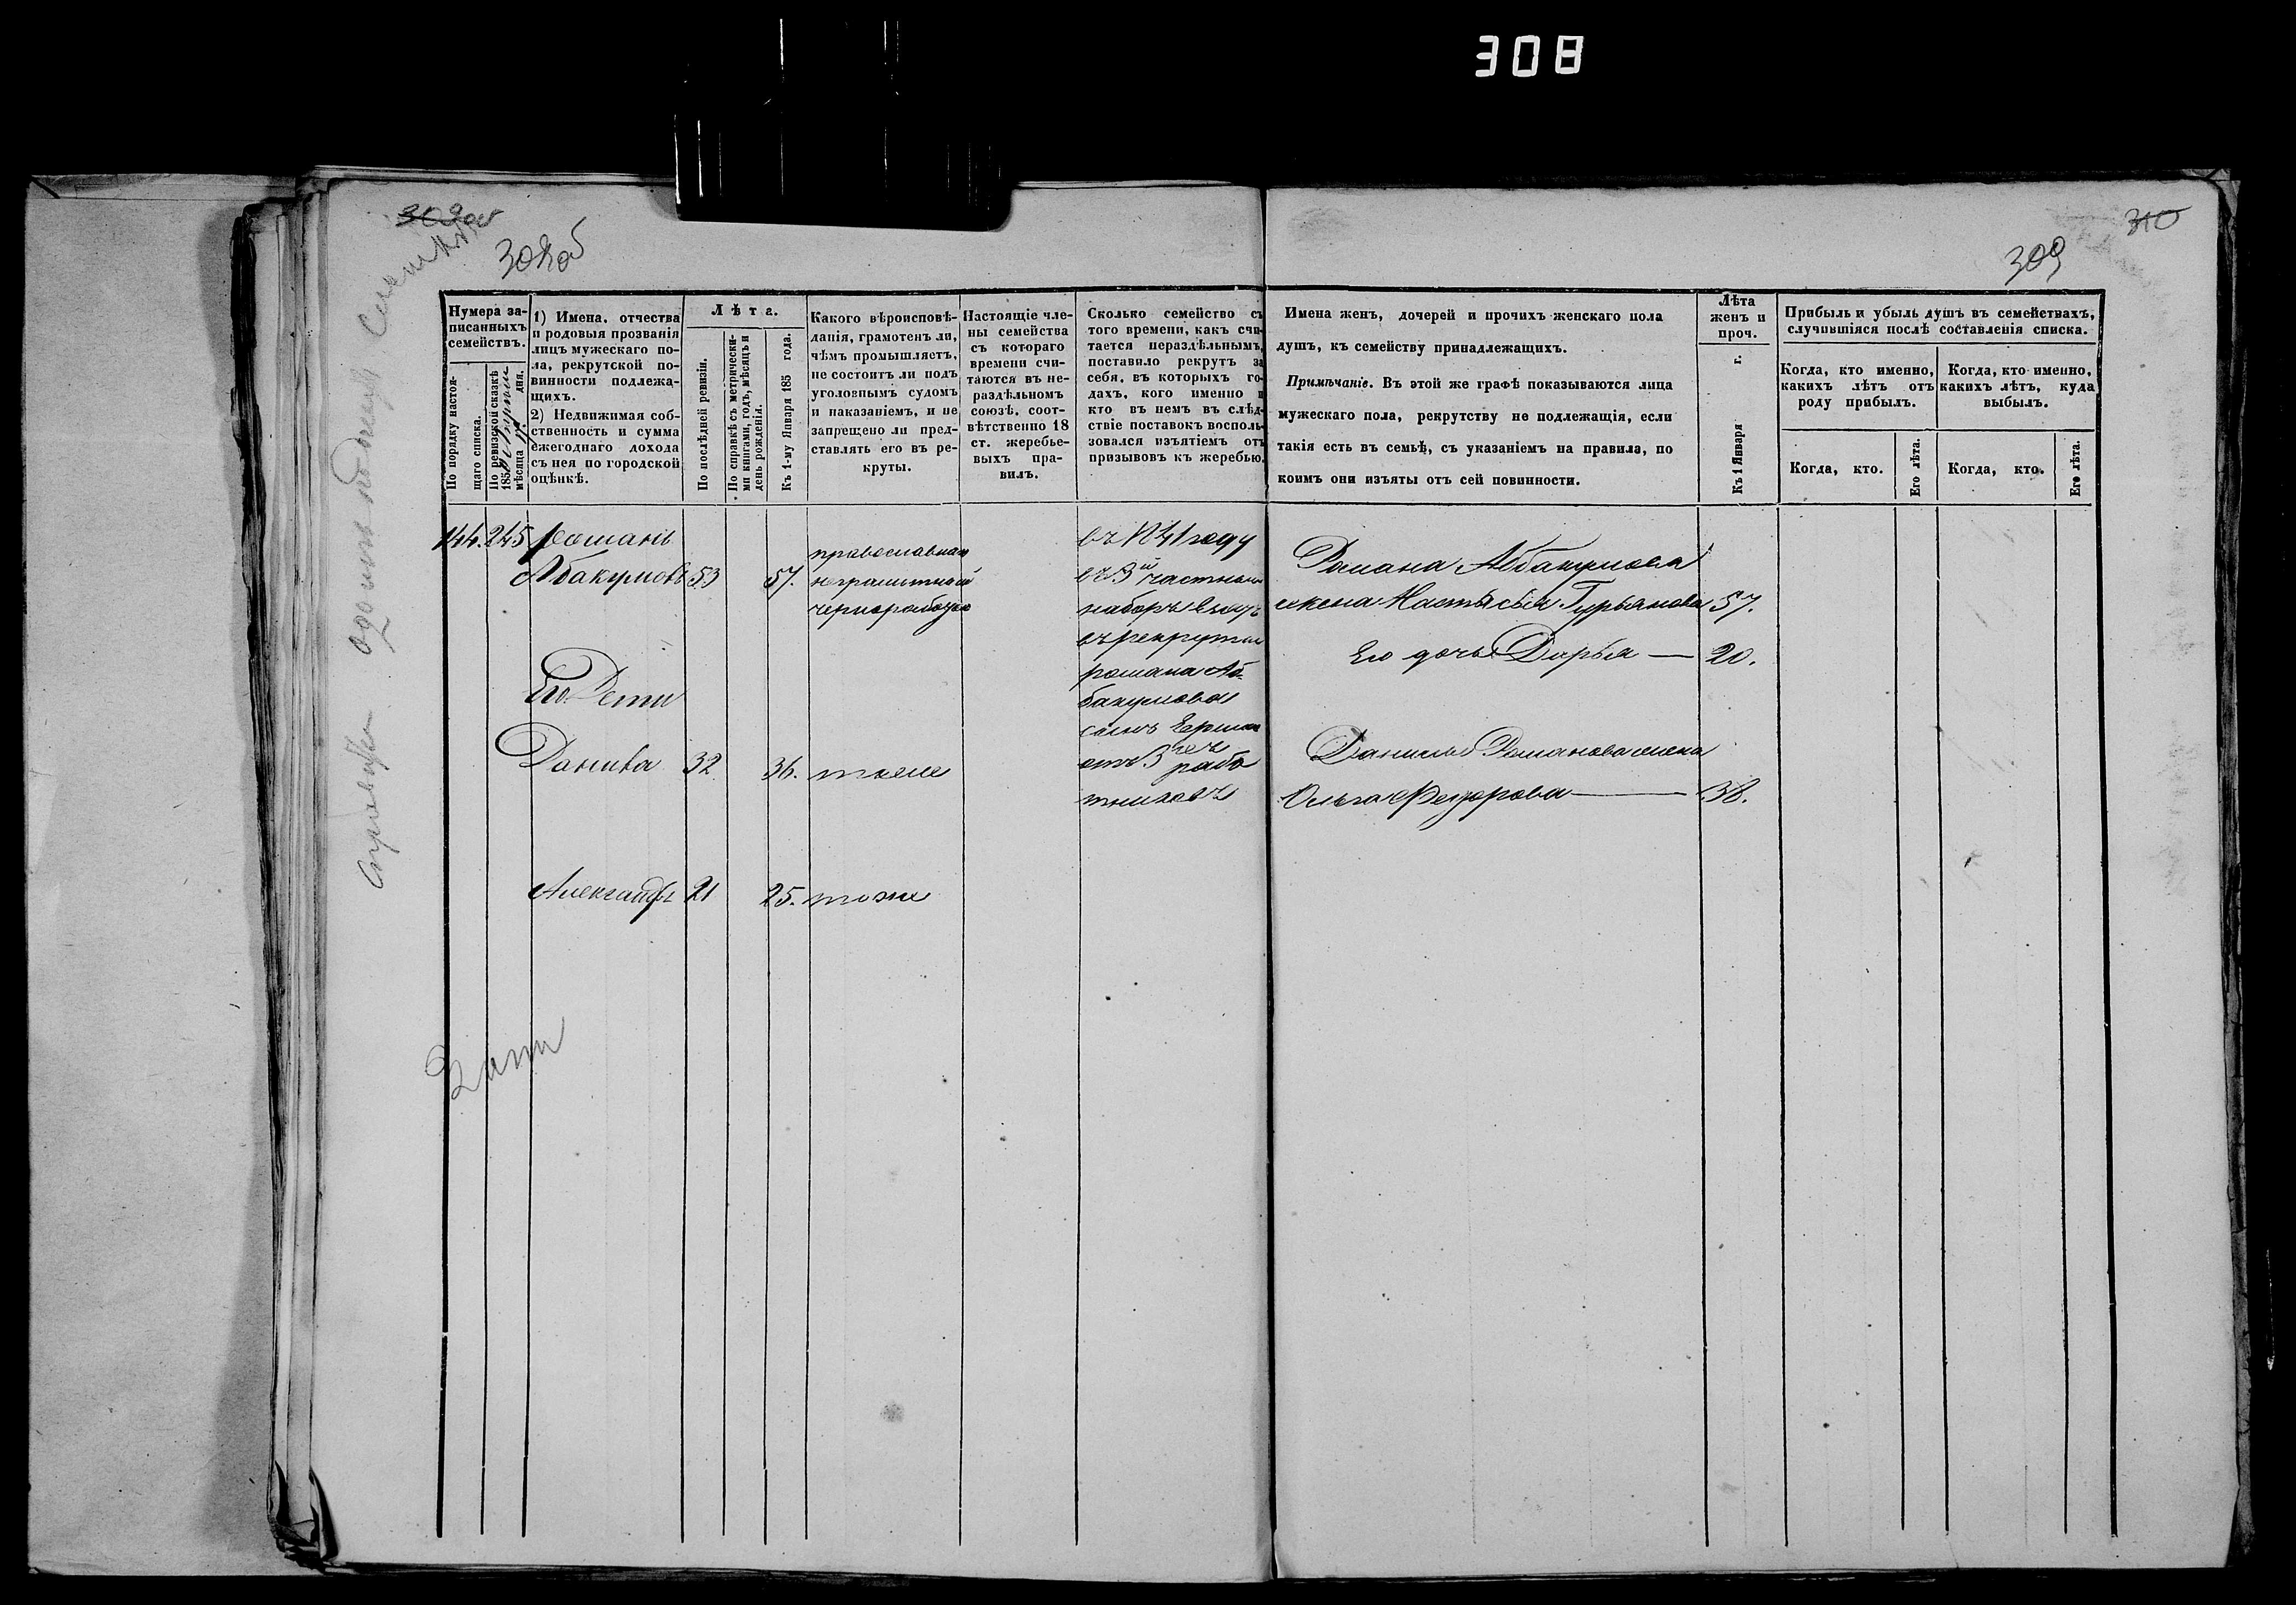 308
309
308об
310
309
Нумера записанныхъ семействъ.
По порядку настоящаго списка.
По ревизской сказкѣ 185 мѣсяца дня.
1) Имена, отчества и родовыя прозванія лицъ мужескаго пола, рекрутской повинности подлежащихъ.
2) Недвижимая собственность и сумма ежегоднаго дохода съ нея по городской оцѣнкѣ.
Лѣта.
По послѣдней ревизіи.
По справкѣ съ метрическими книгами, годъ, мѣсяцъ и день рожденія.
Къ 1-му Января 185 года.
Какого вѣроисповѣданія, грамотенъ ли, чѣмъ промышляетъ, не состоитъ ли подъ уголовнымъ судомъ и наказаніемъ, и не запрещено ли представлять его въ рекруты.
Настоящіе члены семейства съ котораго времени считаются въ нераздѣльномъ союзѣ, соотвѣтственно 18 ст. жеребьевыхъ правилъ.
Сколько семейство съ того времени, какъ считается нераздѣльнымъ, поставило рекрутъ за себя, въ которыхъ годахъ, кого именно и кто въ немъ въ слѣдствіе поставокъ воспользовался изъятіемъ отъ призывовъ къ жеребью.
Имена женъ, дочерей и прочихъ женскаго пола
душъ, къ семейству принадлежащихъ.
Примѣчаніе. Въ этой же графѣ показываются лица
мужескаго пола, рекрутству не подлежащія, если
такія есть въ семьѣ, съ указаніемъ на правила, по
коимъ они изъяты отъ сей повинности.
Лѣта женъ и проч.
Къ 1 Января г.
Прибыль и убыль душъ въ семействахъ,
случившіяся послѣ составленія списка.
Когда, кто именно, какихъ лѣтъ отъ роду прибылъ.
Когда, кто именно, какихъ лѣтъ, куда выбылъ.
Когда, кто.
Его лѣта.
Когда, кто.
Его лѣта.
144. 245 Романъ
Абакумовъ 53 57.
православнаго
неграмотный
чернорабочій
Его Дети
Данила 32 36. тоже
Александръ 21 25. тоже
въ 1841 году
въ 3й частный
наборъ
въ рекруты
романа Аб
бакумова
сынъ
отъ 3хъ рабо
тниковъ
Романа Аббакумова
жена Настасья Гурьянова 57.
Его дочь Дарья — 20.
Данилы Романова жена
Ольга Федорова — 38.